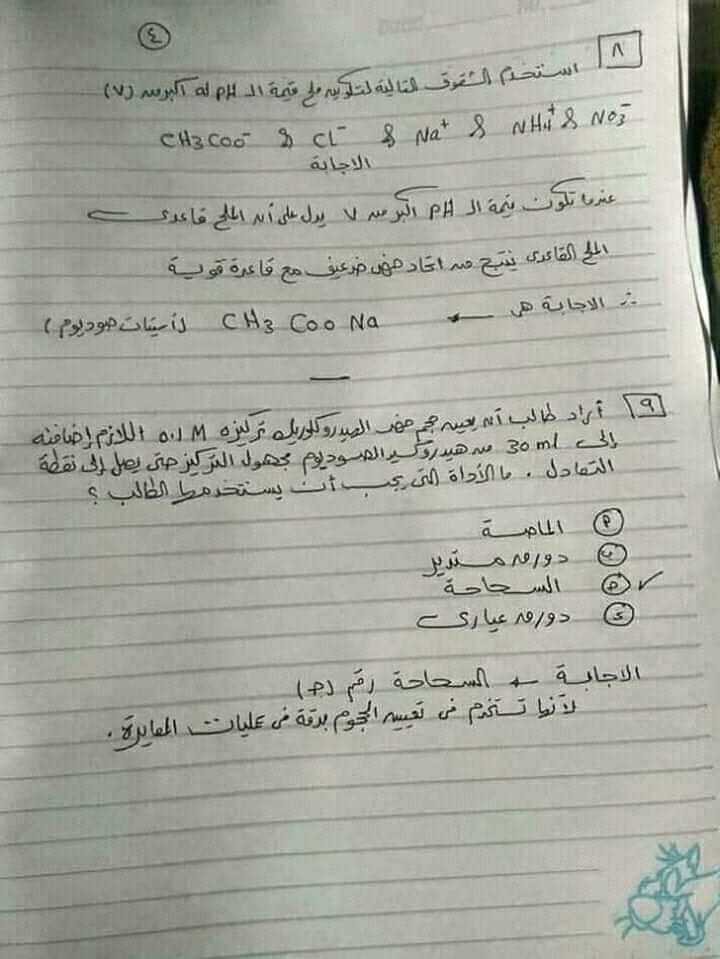 ٤
٨ استخدم الشقوق التالية لتكوين ملح قيمة الـ PH له أكبر من (٧)
CH3COO⁻ & Cl⁻ & Na⁺ & NH4⁺ & NO3⁻
الاجابة
عندما تكون قيمة الـ PH أكبر من ٧ يدل على أن الملح قاعدى ←
الملح القاعدى ينتج من اتحاد حمض ضعيف مع قاعدة قوية
∴ الاجابة هى ← CH3COONa (أسيتات صوديوم)
٩ أراد طالب أن يعين حجم حمض الهيدروكلوريك تركيزه 0.1 M اللازم إضافته
إلى 30 ml من هيدروكسيد الصوديوم مجهول التركيز حتى يصل إلى نقطة
التعادل . ما الأداة التى يجب أن يستخدمها الطالب ؟
أ الماصة
ب دورق مستدير
ج السحاحة ✓
د دورق عيارى
الاجابة ← السحاحة رقم (ج)
لأنها تستخدم فى تعيين الحجوم بدقة فى عمليات المعايرة .